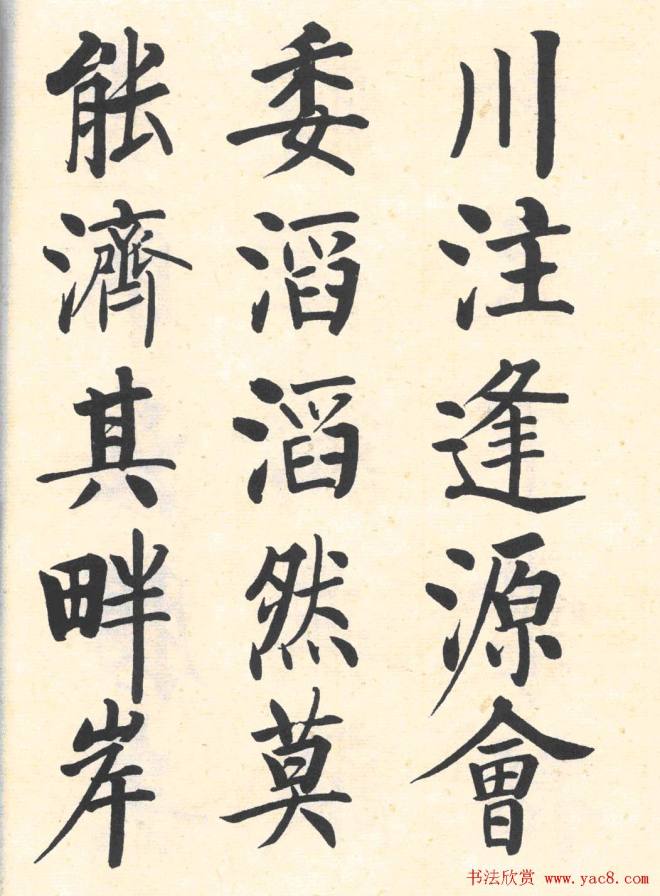 川注逢源會
委滔滔然莫
能濟其畔岸
书法欣赏 www.yac8.com